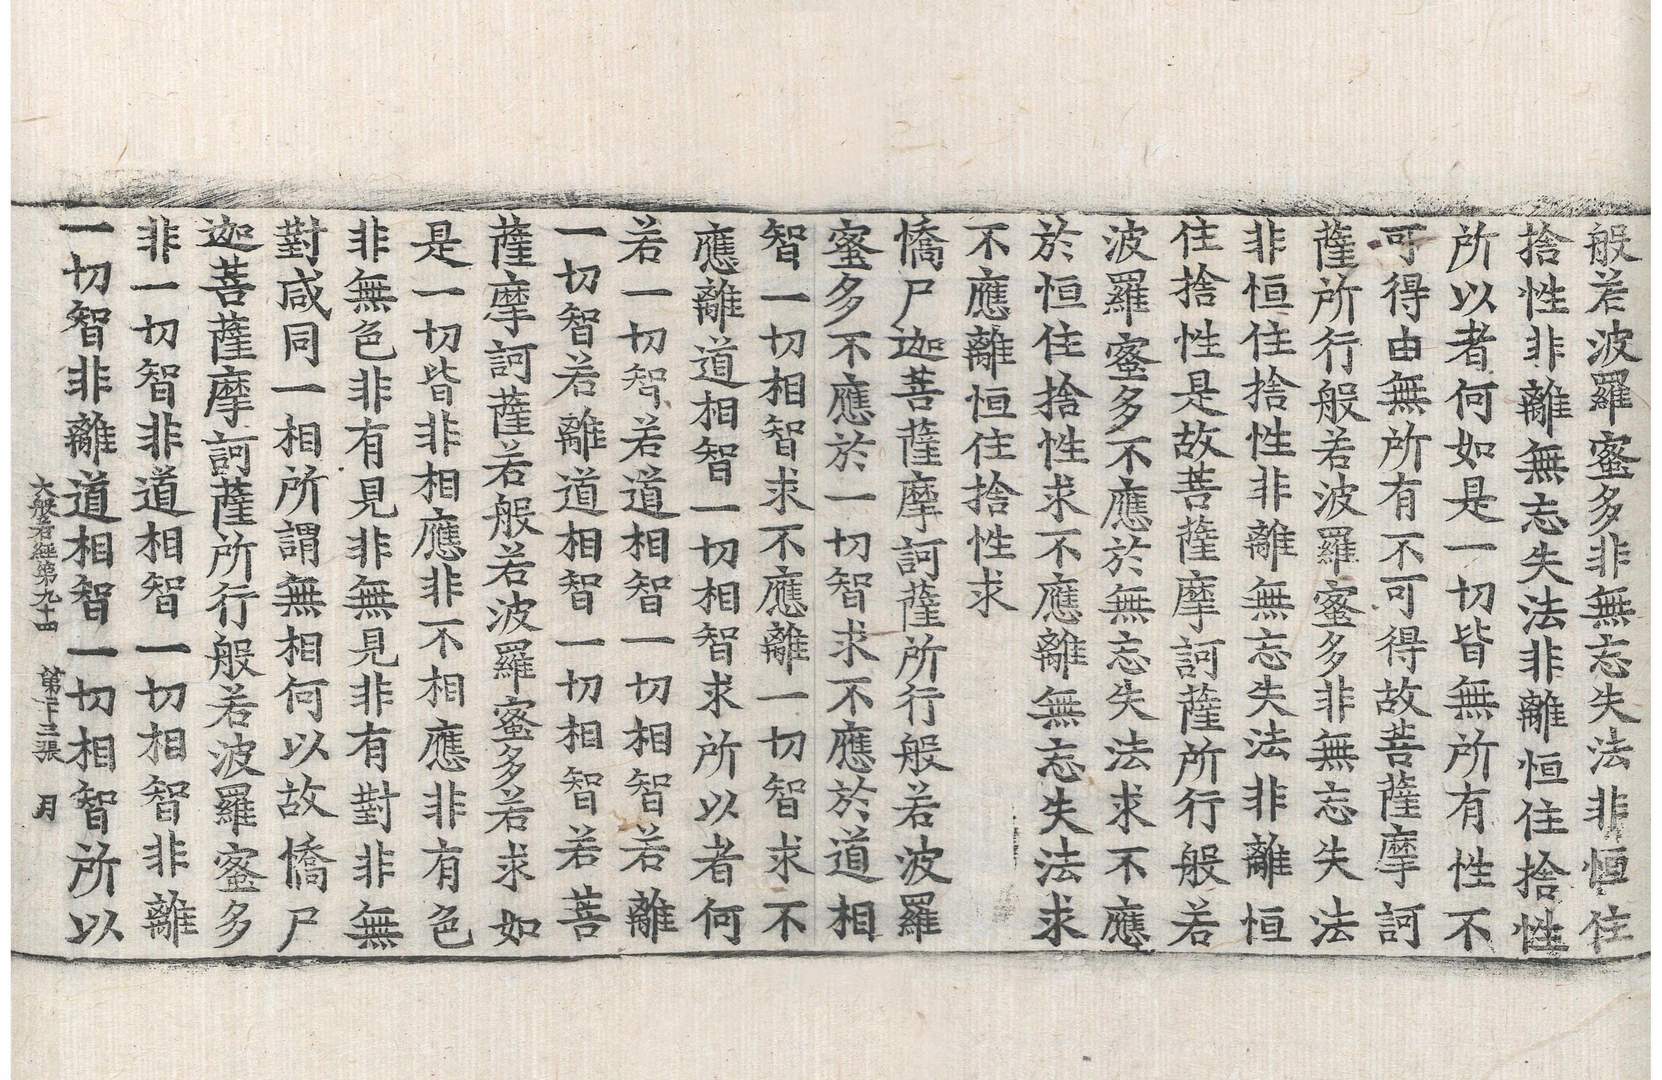 般若波羅蜜多非無忘失法非恒住
捨性非離無忘失法非離恒住捨性
所以者何如是一切皆無所有性不
可得由無所有不可得故菩薩摩訶
薩所行般若波羅蜜多非無忘失法
非恒住捨性非離無忘失法非離恒
住捨性是故菩薩摩訶薩所行般若
波羅蜜多不應於無忘失法求不應
於恒住捨性求不應離無忘失法求
不應離恒住捨性求
憍尸迦菩薩摩訶薩所行般若波羅
蜜多不應於一切智求不應於道相
智一切相智求不應離一切智求不
應離道相智一切相智求所以者何
若一切智若道相智一切相智若離
一切智若離道相智一切相智若菩
薩摩訶薩若般若波羅蜜多若求如
是一切皆非相應非不相應非有色
非無色非有見非無見非有對非無
對咸同一相所謂無相何以故憍尸
迦菩薩摩訶薩所行般若波羅蜜多
非一切智非道相智一切相智非離
一切智非離道相智一切相智所以
大般若經第九十四 第十三張 月